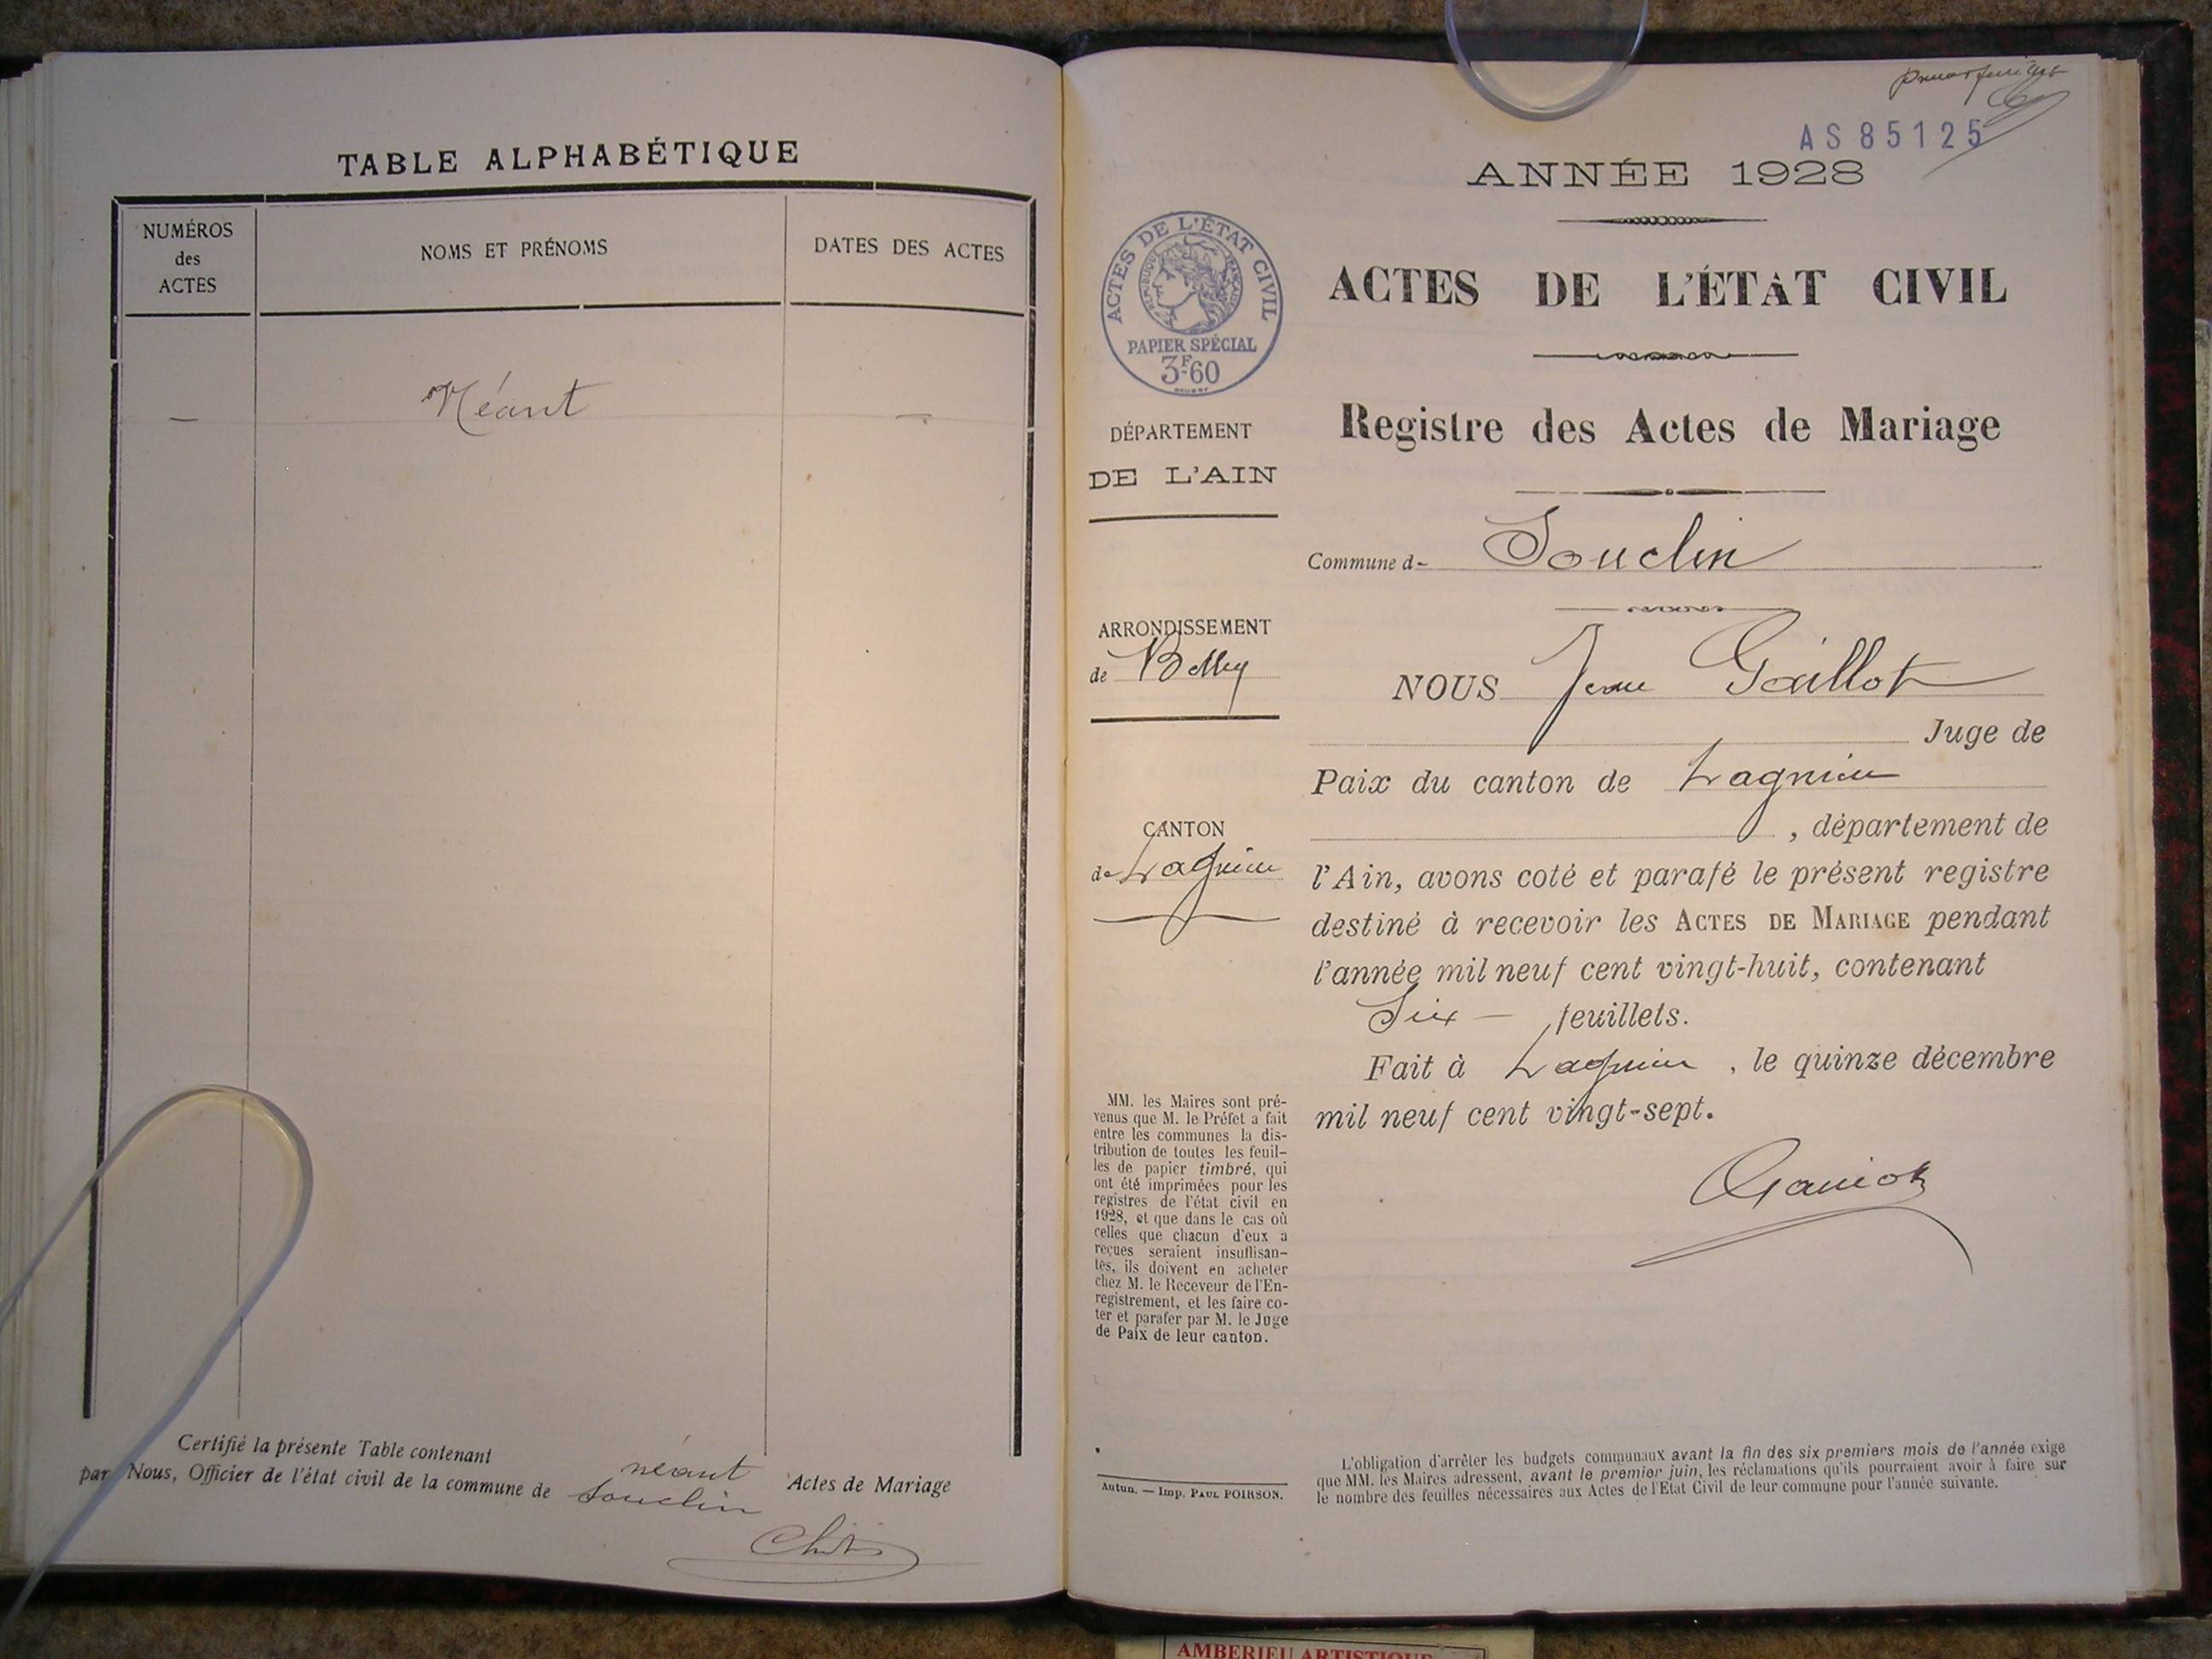 TABLE ALPHABÉTIQUE
NUMÉROS
des
ACTES
NOMS ET PRÉNOMS
DATES DES ACTES
— Néant —
Certifié la présente Table contenant néant Actes de Mariage
par Nous, Officier de l'état civil de la commune de Souclin
AS85125
ANNÉE 1928
ACTES DE L'ÉTAT CIVIL
RÉPUBLIQUE FRANÇAISE
PAPIER SPÉCIAL
3F.60
ACTES DE L'ÉTAT CIVIL
Registre des Actes de Mariage
DÉPARTEMENT
DE L'AIN
ARRONDISSEMENT
de Belley
CANTON
de Lagnieu
Commune d- Souclin
NOUS Jean Gaillot
Juge de
Paix du canton de Lagnieu
, département de
l'Ain, avons coté et parafé le présent registre
destiné à recevoir les ACTES DE MARIAGE pendant
l'année mil neuf cent vingt-huit, contenant
Six — feuillets.
Fait à Lagnieu, le quinze décembre
mil neuf cent vingt-sept.
MM. les Maires sont pré-
venus que M. le Préfet a fait
entre les communes la dis-
tribution de toutes les feuil-
les de papier timbré, qui
ont été imprimées pour les
registres de l'état civil en
1928, et que dans le cas où
celles que chacun d'eux a
reçues seraient insuffisan-
tes, ils doivent en acheter
chez M. le Receveur de l'En-
registrement, et les faire co-
ter et parafer par M. le Juge
de Paix de leur canton.
Autun. — Imp. PAUL POIRSON.
L'obligation d'arrêter les budgets communaux avant la fin des six premiers mois de l'année exige
que MM. les Maires adressent, avant le premier juin, les réclamations qu'ils pourraient avoir à faire sur
le nombre des feuilles nécessaires aux Actes de l'Etat Civil de leur commune pour l'année suivante.
AMBERIEU ARTISTIQUE